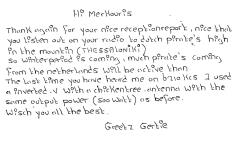 Hi Merkouris
Thank again for your nice receptionreport, nice that
you listen out on your radio to dutch pirate's high
in the mountin (THESSALONIKI)
so winterperiod is coming, much pirate's coming
from the netherlands will be active than.
The last time you have heard me on 1710 kcs I used
a inverted.V with a chickentree antenna with the
same output power (500 watt) as before.
Wisch you all the best.
Greetz Gertie